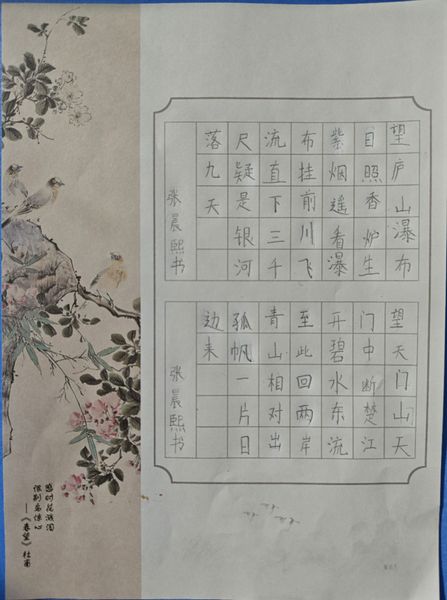 望庐山瀑布
目照香炉生
紫烟遥看瀑
布挂前川飞
流直下三千
尺疑是银河
落九天
张晨熙书
望天门山天
门中断楚江
开碧水东流
至此回两岸
青山相对出
孤帆一片日
边来
张晨熙书
感时花溅泪
恨别鸟惊心
——《春望》杜甫